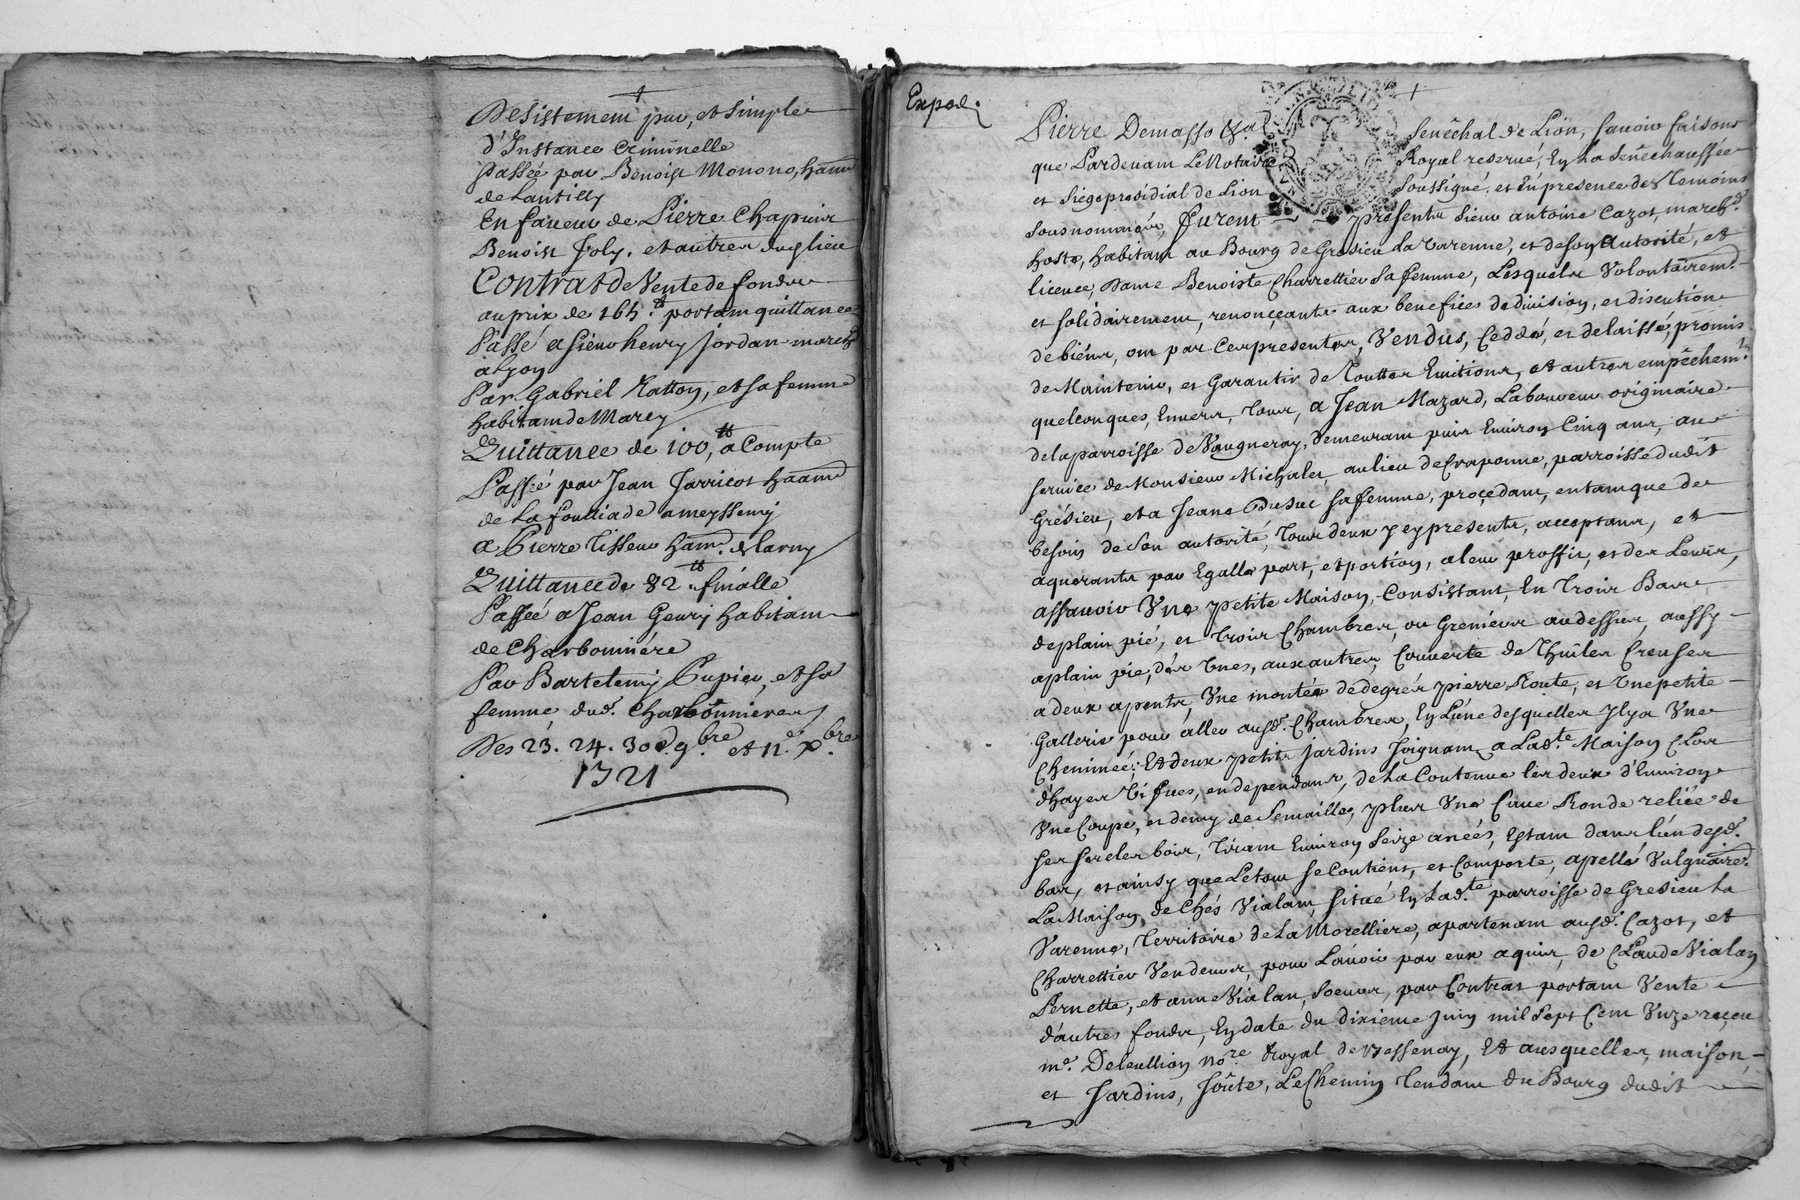 Desistement pur, et simple
d'Instance Criminelle
Passée par Benoist Monono, ham
de Lantilly
En faveur de Pierre Chapuis
Benoist Joly, et autres dud lieu
Contrat de Vente de fonds
au prix de 165 # portam quittance
Passé a Sieur henry Jordan march
a Lyon
Par Gabriel Ratton, et sa femme
habitam de Marcy
Quittance de 100 # a Compte
Passée par Jean Jarricot
de La a meyssemy
a Pierre Tisseur ham
Quittance de 82 # finalle
Passée a Jean Geury habitam
de Charbonniére
Par Bartelemy Pupier, et sa
femme dud. Charbonnieres
Des 23. 24. 30e 9bre et 12e Xbre
1721
Exped.
Pierre Demasso &a Senêchal de Lion, sauoir faisons
que Pardeuam Le Notaire Royal reserué, En La Senechaussée
et Siege presidial de Lion Soussigné, et En presence des Temoins
sous nommés, Furent presents Sieur antoine Cazot, march
hoste, habitam au Bourg de Gresieu La Varenne, et de son Autorité, et
licence, Dame Benoiste Charrettier sa femme, Lesquels Volontairem
et solidairement, renonçants aux benefices de diuision, et discution
de biens, ont par Ces presentes, Vendus, Ceddé, et delaissé, promis
de Maintenir, et Garantir de Touttes Euitions, et autres empêchem
quelconques, Enuers, Tous, a Jean Mazard, Laboureur originaire
de la parroisse de Vaugneray, Demeuram puis Enuiron Cinq ans, au
seruice de Monsieur Michalet, au lieu de Craponne, parroisse dudit
Grésieu, et a Jeane Dusuc sa femme, proçedam, entam que de
besoin de Son autorité, Tous deux Jcy presents, acceptans, et
aquerants par Egalle part, et portion, a leur proffit, et des Leurs,
assauoir Vne petite Maison, Consistant, En Trois Bas
de plain pié, et Trois Chambres, ou Greniers audessus, aussy
a plain pie, des Vnes, aux autres, Couuerte de Thuiles Creuses
a deux apents, Vne montée de degrés pierre Route, et Vne petite
Gallerie pour aller ausd. Chambres, En L'une desquelles Jl y a Vne
Cheminée; Et deux petits jardins Joignam a Lad.te Maison Clos
d'hayes Vifues, en dependans, de La Contenue Les deux d'Enuiron
Vne Coupe, et demy de Semaille, plus Vne Cuue Ronde reliée de
ses sercles bois, Tiram Enuiron Seize anées, Estam dans l'un desd.
bas, et ainsy que Le tout se Contient, et Comporte, apellé Vulgairem.
La Maison de Chés Vialam, situé En Lad.te parroisse de Gresieu La
Varenne, Territoire de La Morelliere, apartenam ausd. Cazot, et
Charrettier Vendeurs, pour L'auoir par eux aquis, de Claude Vialan
Pernette, et anne Vialan, Soeurs, par Contrat portam Vente
d'autres fonds, En date du dixieme Juin mil Sept Cem Vnze reçeu
me. Deleullion nore Royal de Bessenay, Et ausquelles, maison,
et Jardins, joûte, Le Chemin Tendam du Bourg dudit